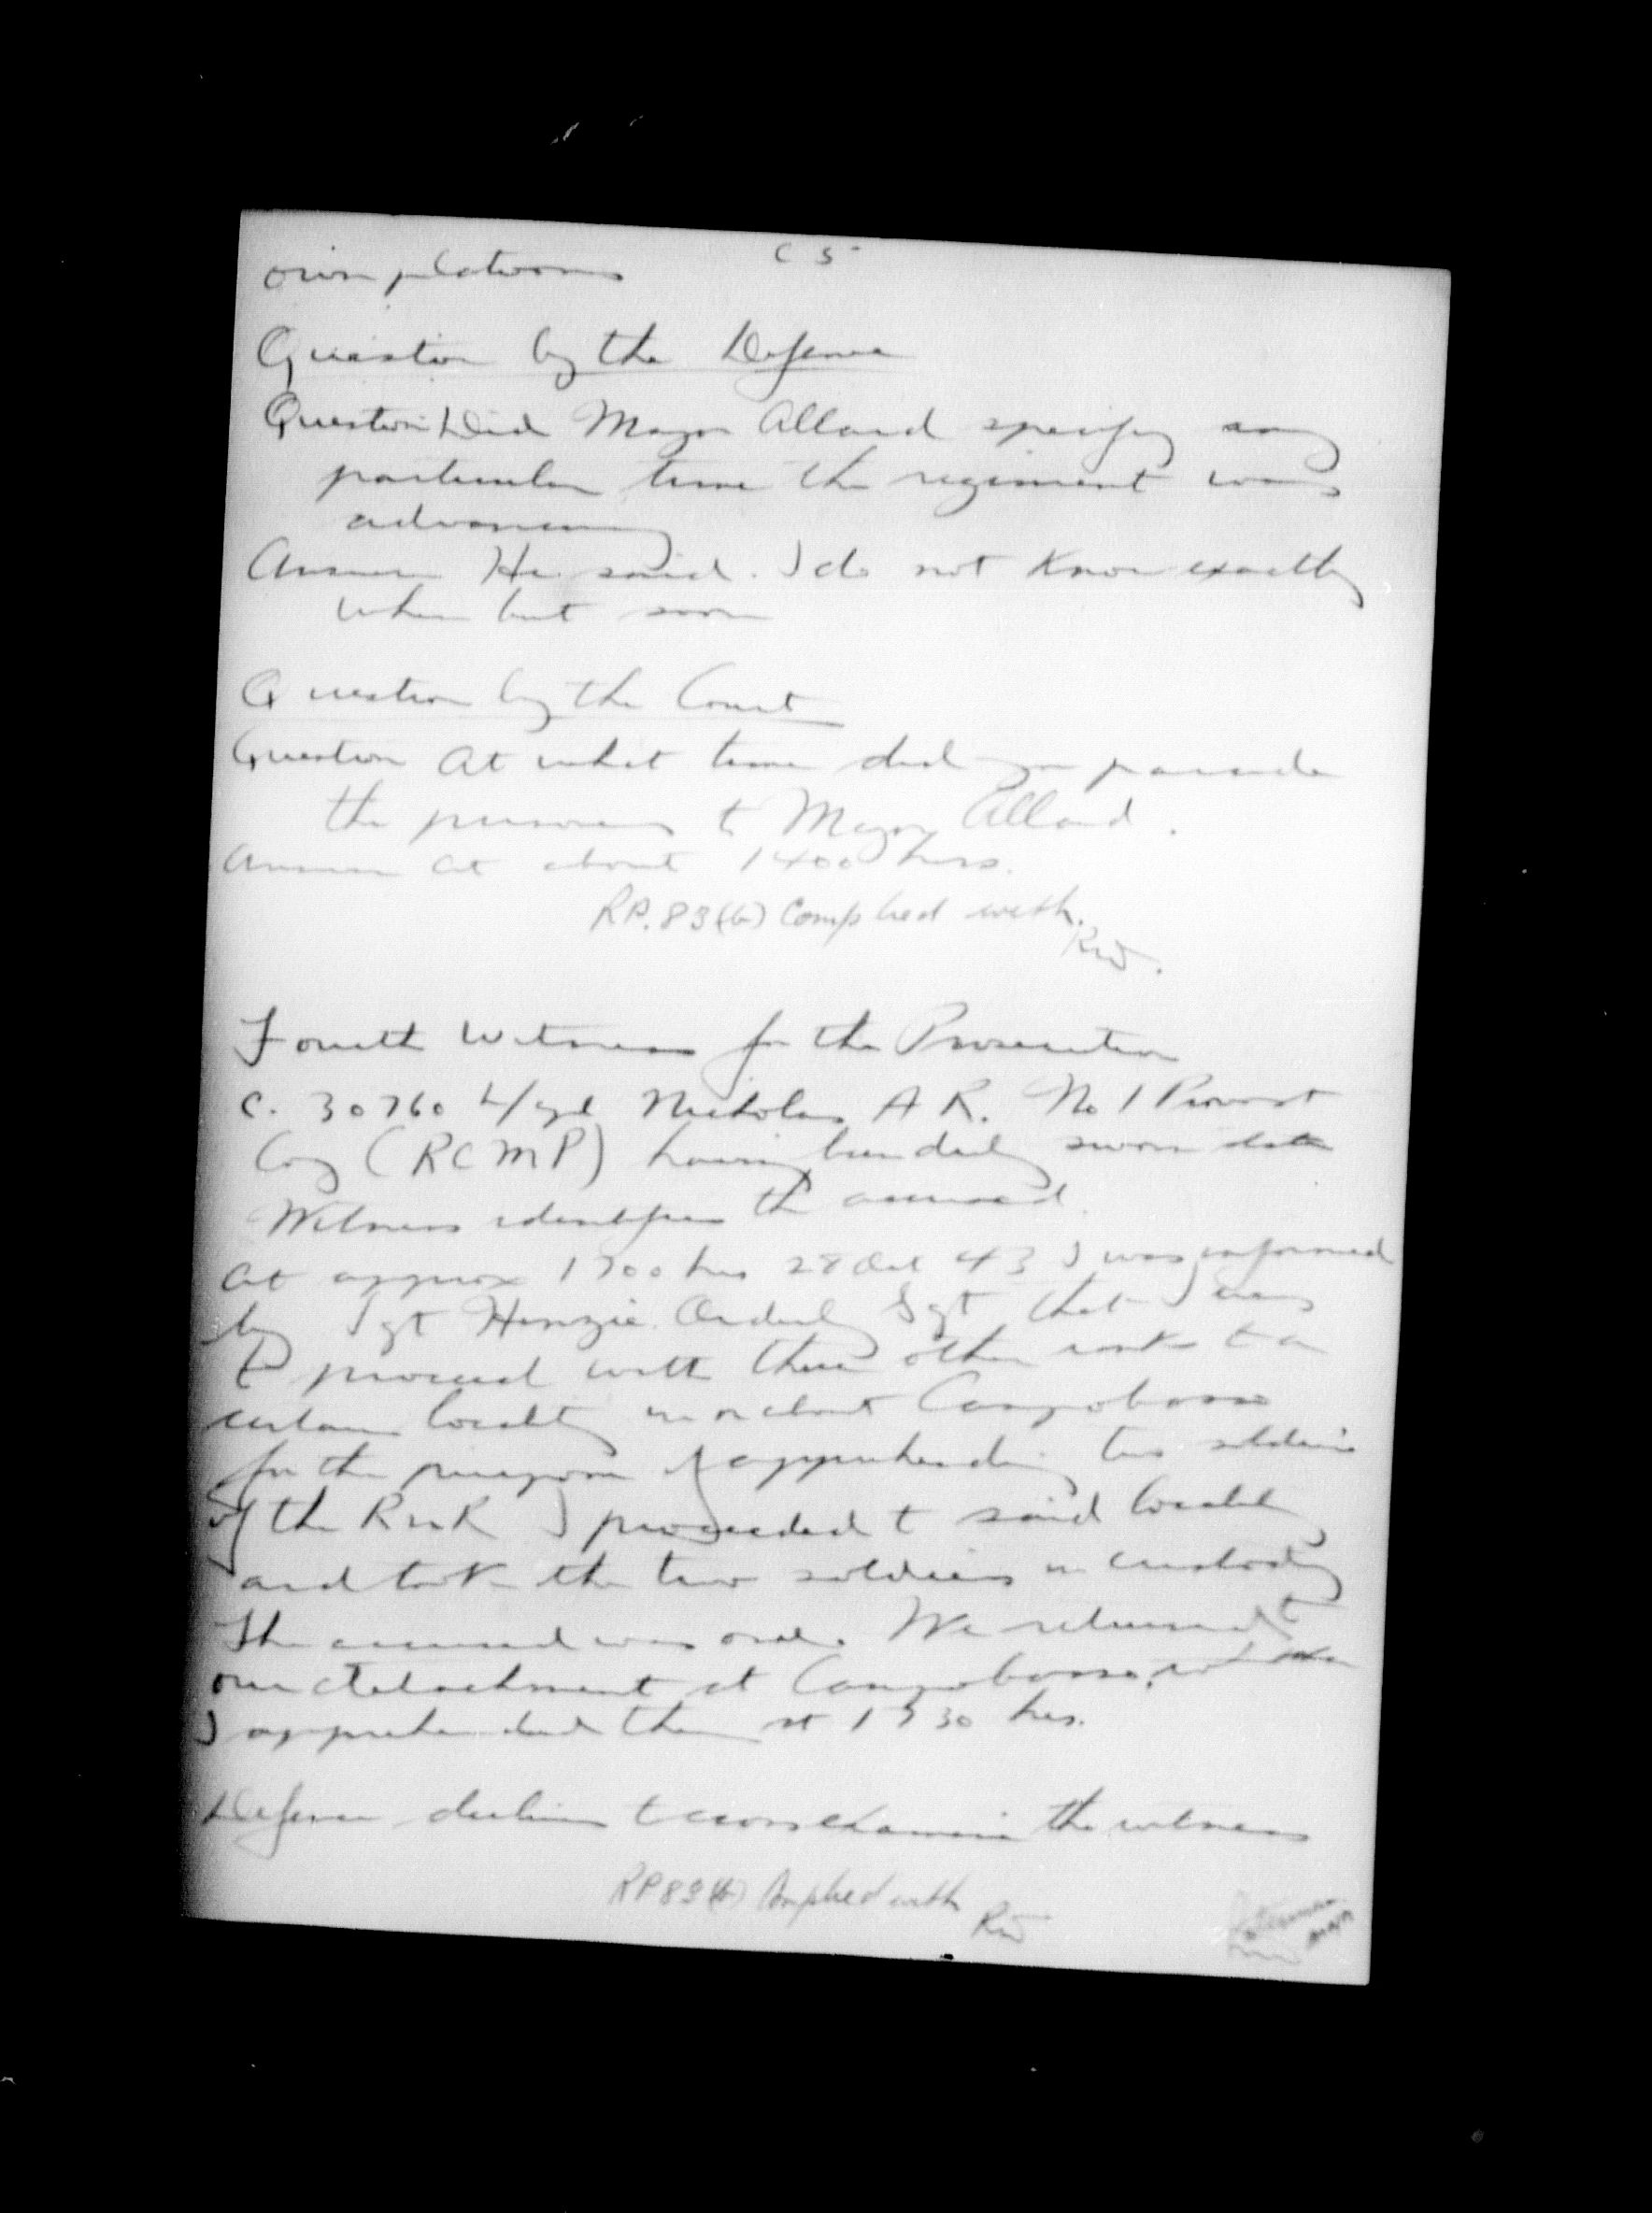 C 5
own platoons
Question by the Defence
Question Did Major Allard specify any
particular time the regiment was
advancing
Answer He said. I do not know exactly
when but soon
Question by the Court
Question At what time did you parade
the prisoners to Major Allard.
Answer At about 1400 hrs.
RP. 83(b) Complied with.
RW.
Fourth Witness for the Prosecution
C. 30760 L/Cpl Nicholas A R. No 1 Provost
Coy (RCMP) having been duly sworn states
Witness identifies the accused.
At approx 1700 hrs 28 Oct 43 I was informed
by Sgt Henzie Orderly Sgt that I was
to proceed with three other ranks to a
certain locality in or about Campobasso
for the purpose of apprehending two soldiers
of the R I proceeded to said locality
and took the two soldiers in custody
The accused was one. We returned to
our detachment at Campobasso,
I apprehended them at 1730 hrs.
Defence declines to cross examine the witness
RP 83(b) Complied with
RW